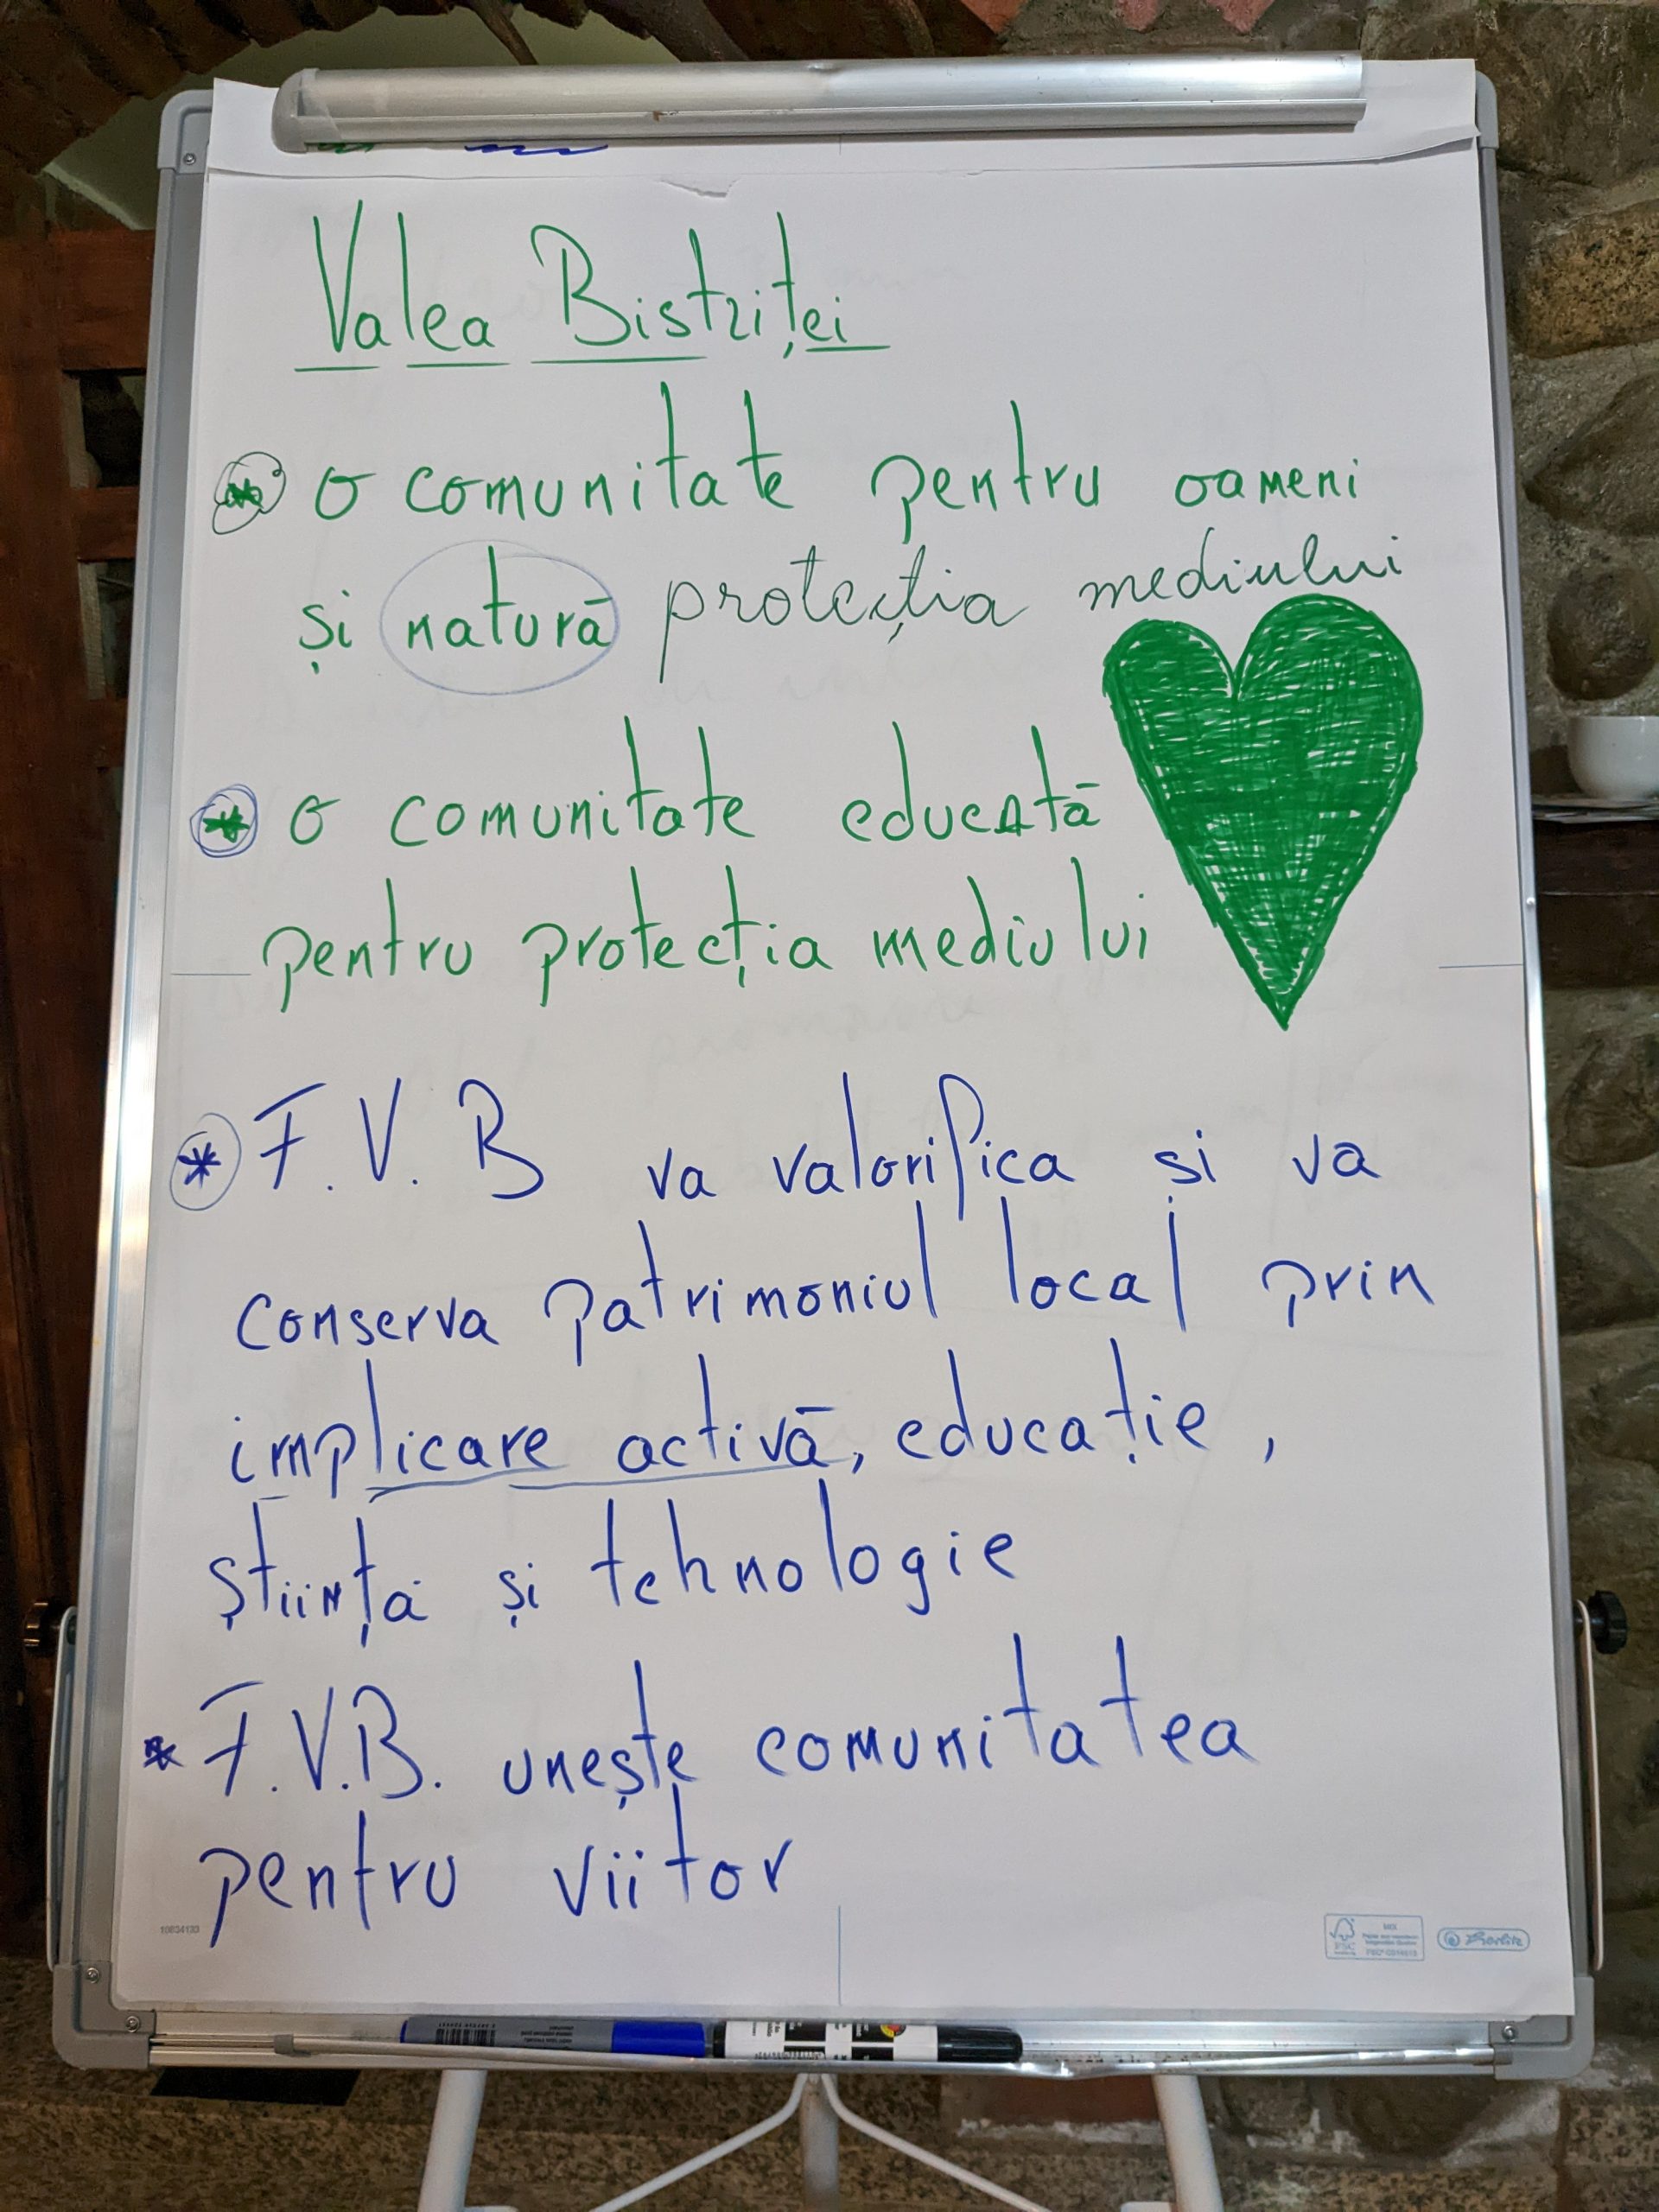 Valea Bistriței
* O comunitate pentru oameni
și natură protecția mediului
* O comunitate educată
pentru protecția mediului
* F.V.B va valorifica și va
conserva patrimoniul local prin
implicare activă, educație,
știință și tehnologie
* F.V.B. unește comunitatea
pentru viitor
10034133
FSC
MIX
Herlitz